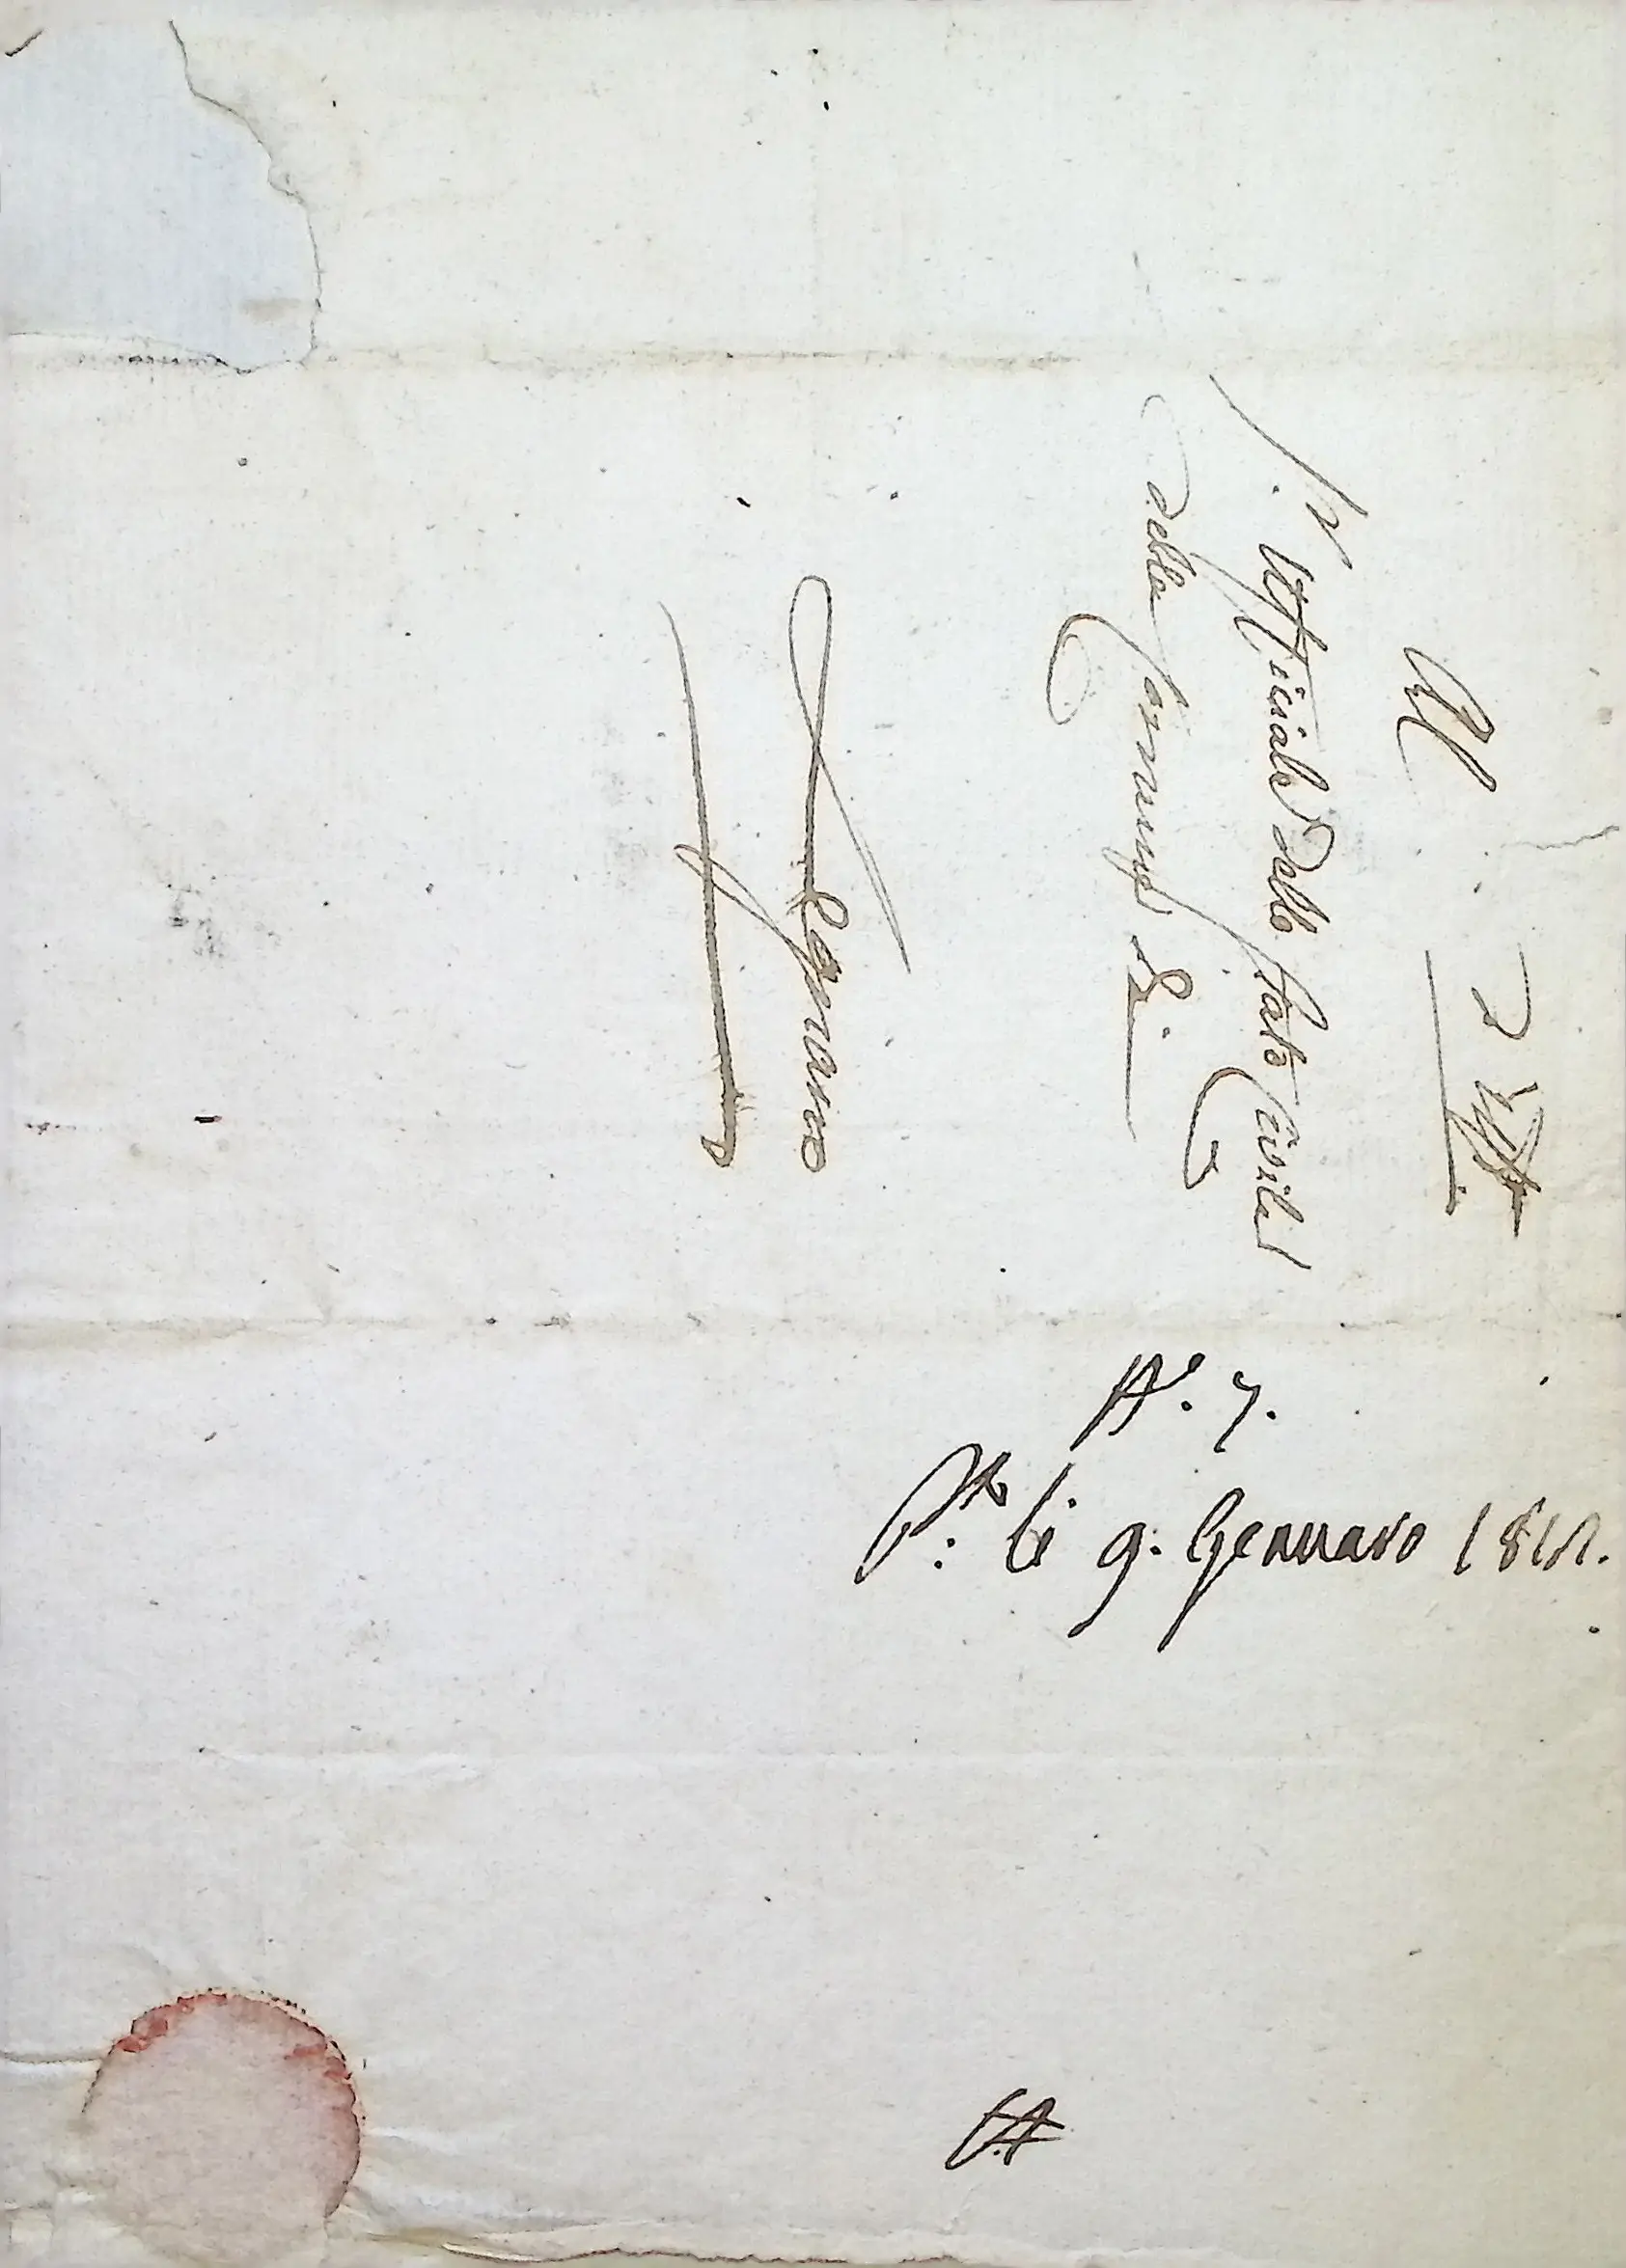 Al
d'Uff.°
S.r Ufficiale dello Stato Civile
della Comune di
Legnano
N.° 7.
P.to li 9. Gennaro 1812.